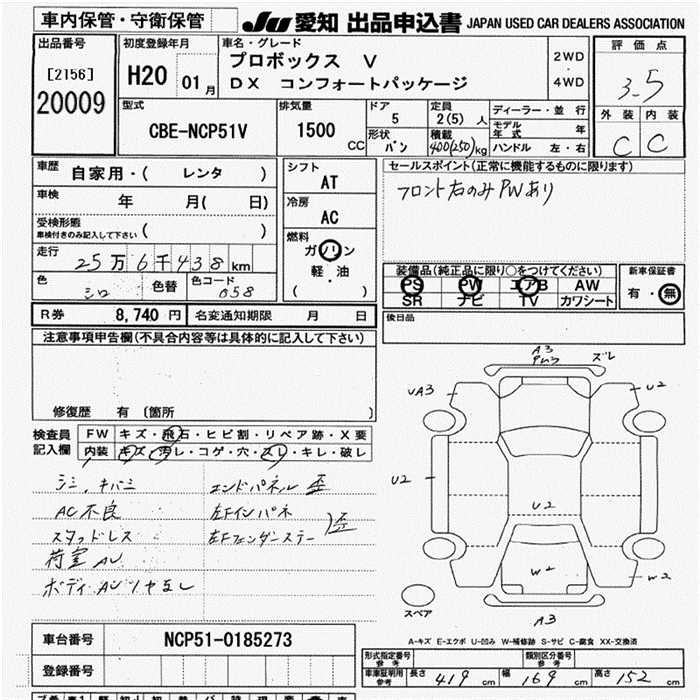 車内保管・守衛保管
JU 愛知 出品申込書 JAPAN USED CAR DEALERS ASSOCIATION
出品番号
[2156]
20009
初度登録年月
H20 01月
車名・グレード
プロボックス V
DX コンフォートパッケージ
2WD
・
4WD
評価点
3.5
外装 内装
C C
型式
CBE-NCP51V
排気量
1500 CC
ドア
5
定員
2(5) 人
形状
バン
積載
400(250)kg
ディーラー・並行
モデル年式 年
ハンドル 左・右
車歴
自家用・( レンタ )
車検
年 月( 日)
受検形態
車検付きのみ記入して下さい ( )
走行
25万6千438km
色
シロ
色替
色コード
058
シフト
AT
冷房
AC
燃料
ガソリン
軽・油
( )
セールスポイント(正常に機能するものに限ります)
フロント右のみPWあり
装備品(純正品に限り○をつけてください)
PS PW エアB AW
SR ナビ TV カワシート
新車保証書
有・無
R券 8,740円 名変通知期限 月 日
後日品
注意事項申告欄(不具合内容等は具体的に記入して下さい)
修復歴 有〔箇所 〕
検査員記入欄
FW キズ・飛石・ヒビ割・リペア跡・X要
内装 キズ・汚レ・コゲ・穴・スレ・キレ・破レ
シミ、キバミ
AC不良
スタッドレス
荷室AU
ボディAUツヤなし
エンドパネル歪
左Fインパネ
左Fフェンダーステー
歪
A3
ズレ
UA3
U2
U2
U2
W2
W2
A3
スペア
A-キズ E-エクボ U-凹み W-補修跡 S-サビ C-腐食 XX-交換済
車台番号 NCP51-0185273
登録番号
形式指定番号
参考
類別区分番号
参考
車庫証明用
参考
長さ 419 cm 幅 169 cm 高さ 152 cm